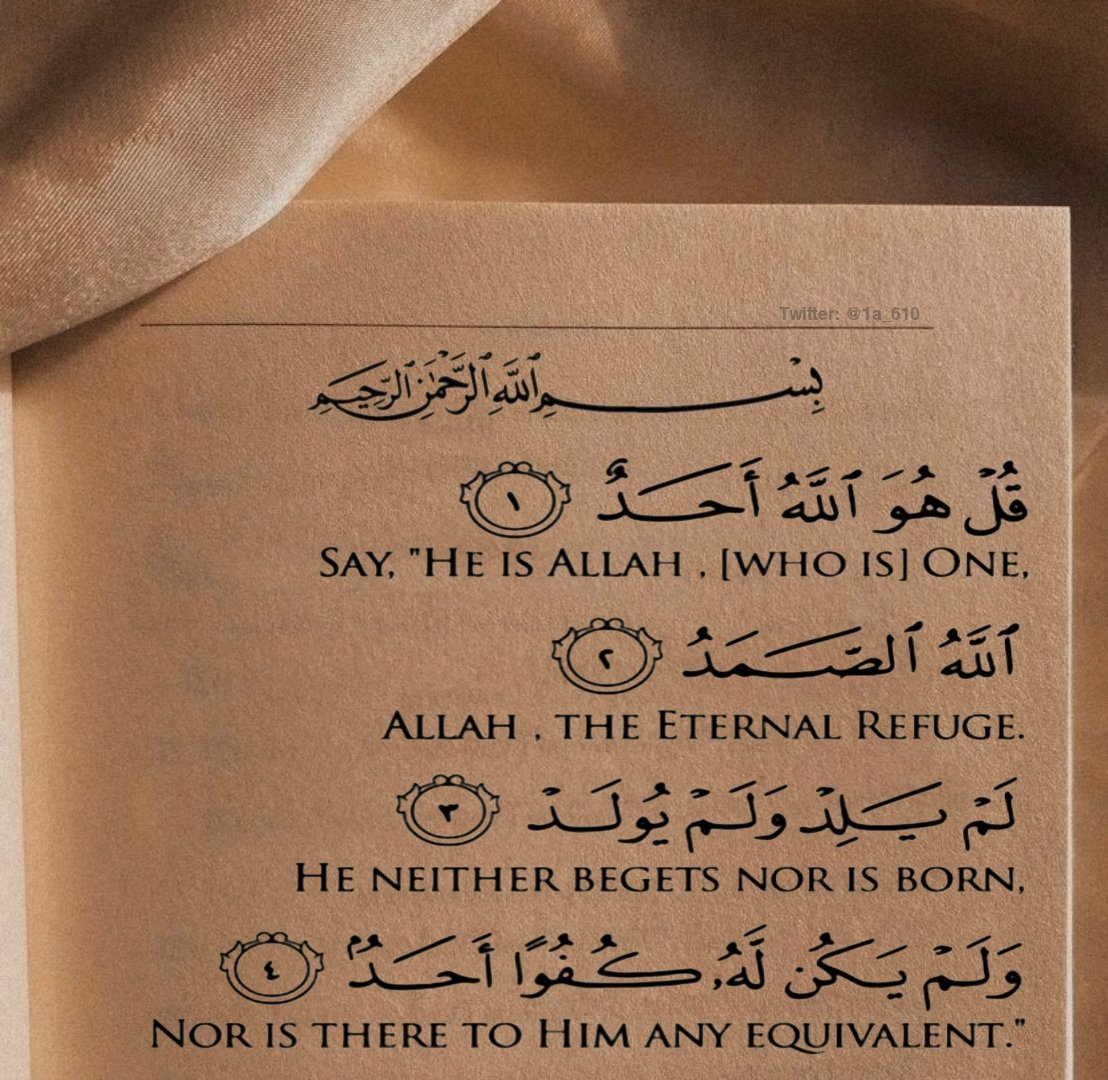 Twitter: @1a_610
بِسْمِ ٱللَّهِ ٱلرَّحْمَٰنِ ٱلرَّحِيمِ
قُلْ هُوَ ٱللَّهُ أَحَدٌ ١
SAY, "HE IS ALLAH , [WHO IS] ONE,
ٱللَّهُ ٱلصَّمَدُ ٢
ALLAH , THE ETERNAL REFUGE.
لَمْ يَلِدْ وَلَمْ يُولَدْ ٣
HE NEITHER BEGETS NOR IS BORN,
وَلَمْ يَكُن لَّهُۥ كُفُوًا أَحَدٌۢ ٤
NOR IS THERE TO HIM ANY EQUIVALENT."